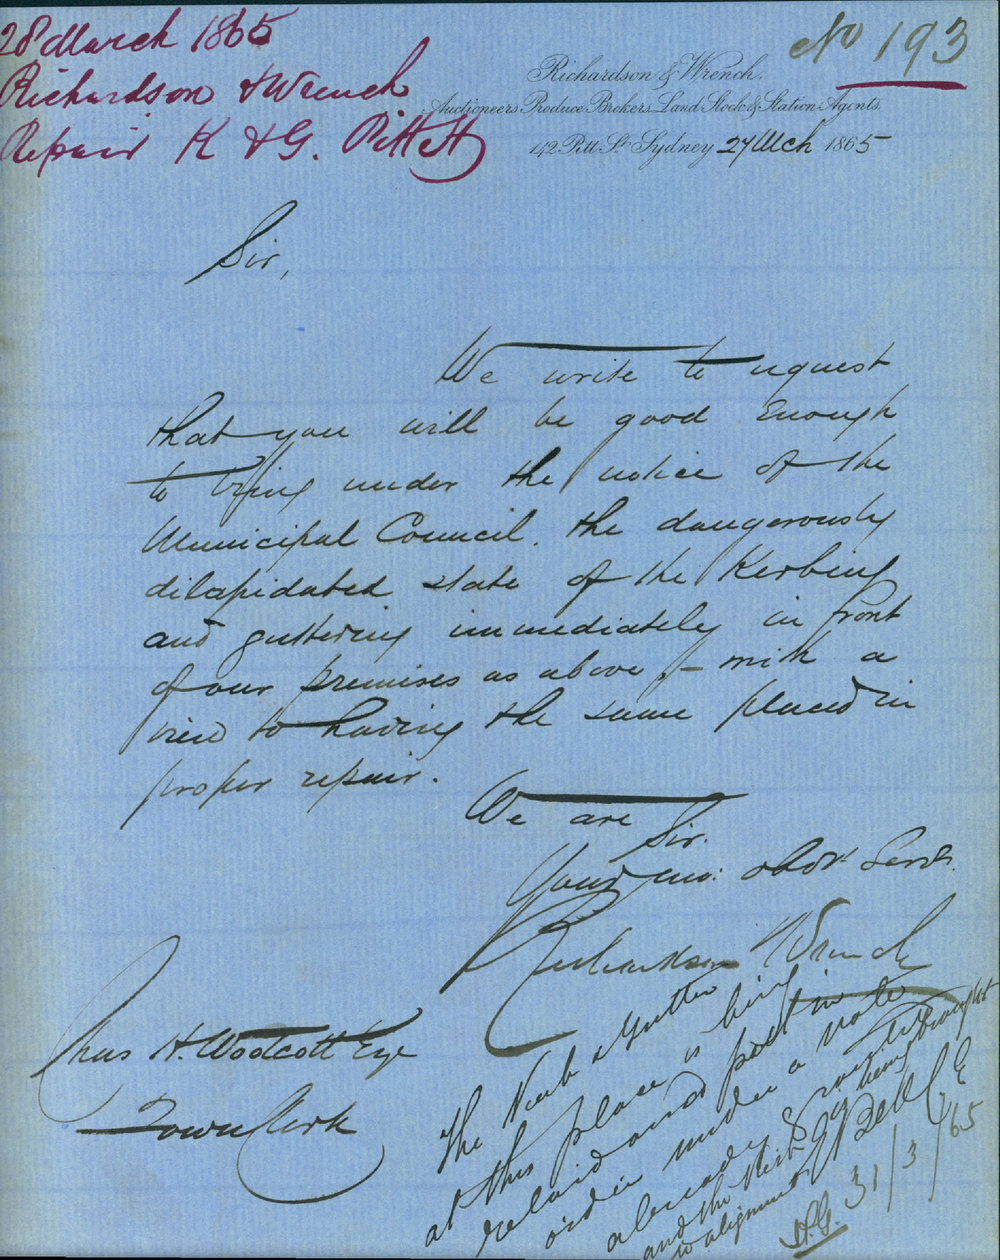 28 March 1865
Richardson & Wrench
Repair K & G. Pitt St
No 193
Richardson & Wrench.
Auctioneers Produce Brokers Land Stock & Station Agents.
142 Pitt St Sydney 27 Mch 1865
Sir,
We write to request
that you will be good enough
to bring under the notice of the
Municipal Council. the dangerously
dilapidated state of the Kerbing
and guttering immediately in front
of our premises as above, - with a
view to having the same placed in
proper repair.
We are
Sir.
Your mo: obdt Servts.
Richardson Wrench
Chas H. Woolcott Esqe
Town Clerk
The Kerb & Gutter
at this place is being
relaid and put in
order under a vote
already
and the Kerb being brought
to alignment
E Bell C E
31/3/65
H.G.